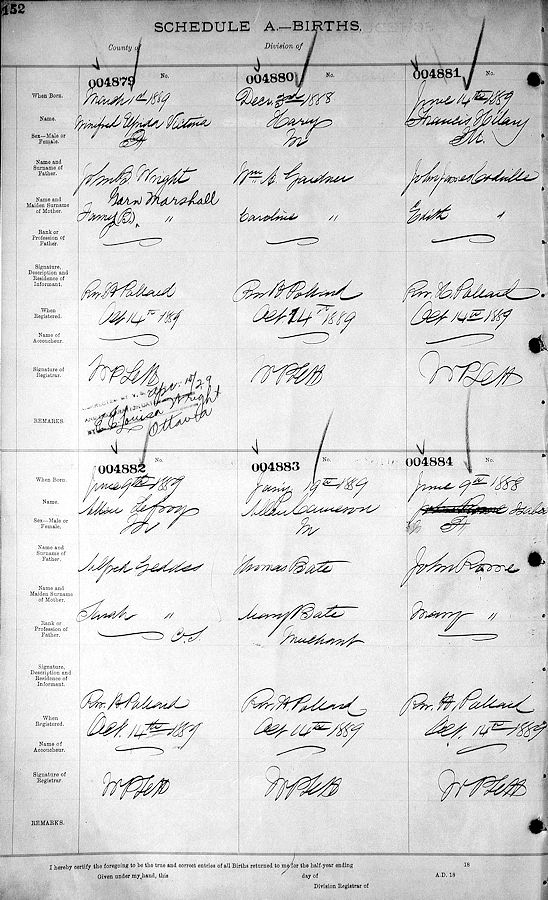 152
SCHEDULE A.—BIRTHS.
County of
Division of
No.
No.
No.
004879
004880
004881
When Born.
March 1st 1889
Decr 3rd 1888
June 14th 1889
Name.
Winifred Victoria
Harry
Francis Hilary
Sex—Male or Female.
F
M
M.
Name and Surname of Father.
John Wright
Wm A. Gardner
John Jones
Name and Maiden Surname of Mother.
Marshall
Fanny "
Caroline "
Edith "
Rank or Profession of Father.
Signature, Description and Residence of Informant.
Rev H Pollard
Rev H Pollard
Rev. H. Pollard
When Registered.
Oct 14th 1889
Oct 14th 1889
Oct 14th 1889
Name of Accoucheur.
Signature of Registrar.
W P Lett
W P Lett
W P Lett
REMARKS.
Louisa Wright
Ottawa
No.
No.
No.
004882
004883
004884
When Born.
June 9th 1889
Jany 19th 1889
June 9th 1888
Name.
Lefroy
Allan Cameron
Sex—Male or Female.
M
M
F
Name and Surname of Father.
Alfred Geddes
Thomas Bate
John Rowe
Name and Maiden Surname of Mother.
Sarah "
Mary Bate
Mary "
Rank or Profession of Father.
C.S.
Merchant
Signature, Description and Residence of Informant.
Rev. H Pollard
Rev. H Pollard
Rev. H. Pollard
When Registered.
Oct. 14th 1889
Oct 14th 1889
Oct. 14th 1889
Name of Accoucheur.
Signature of Registrar.
W P Lett
W P Lett
W P Lett
REMARKS.
I hereby certify the foregoing to be the true and correct entries of all Births returned to me for the half-year ending 18
Given under my hand, this day of A.D. 18
Division Registrar of